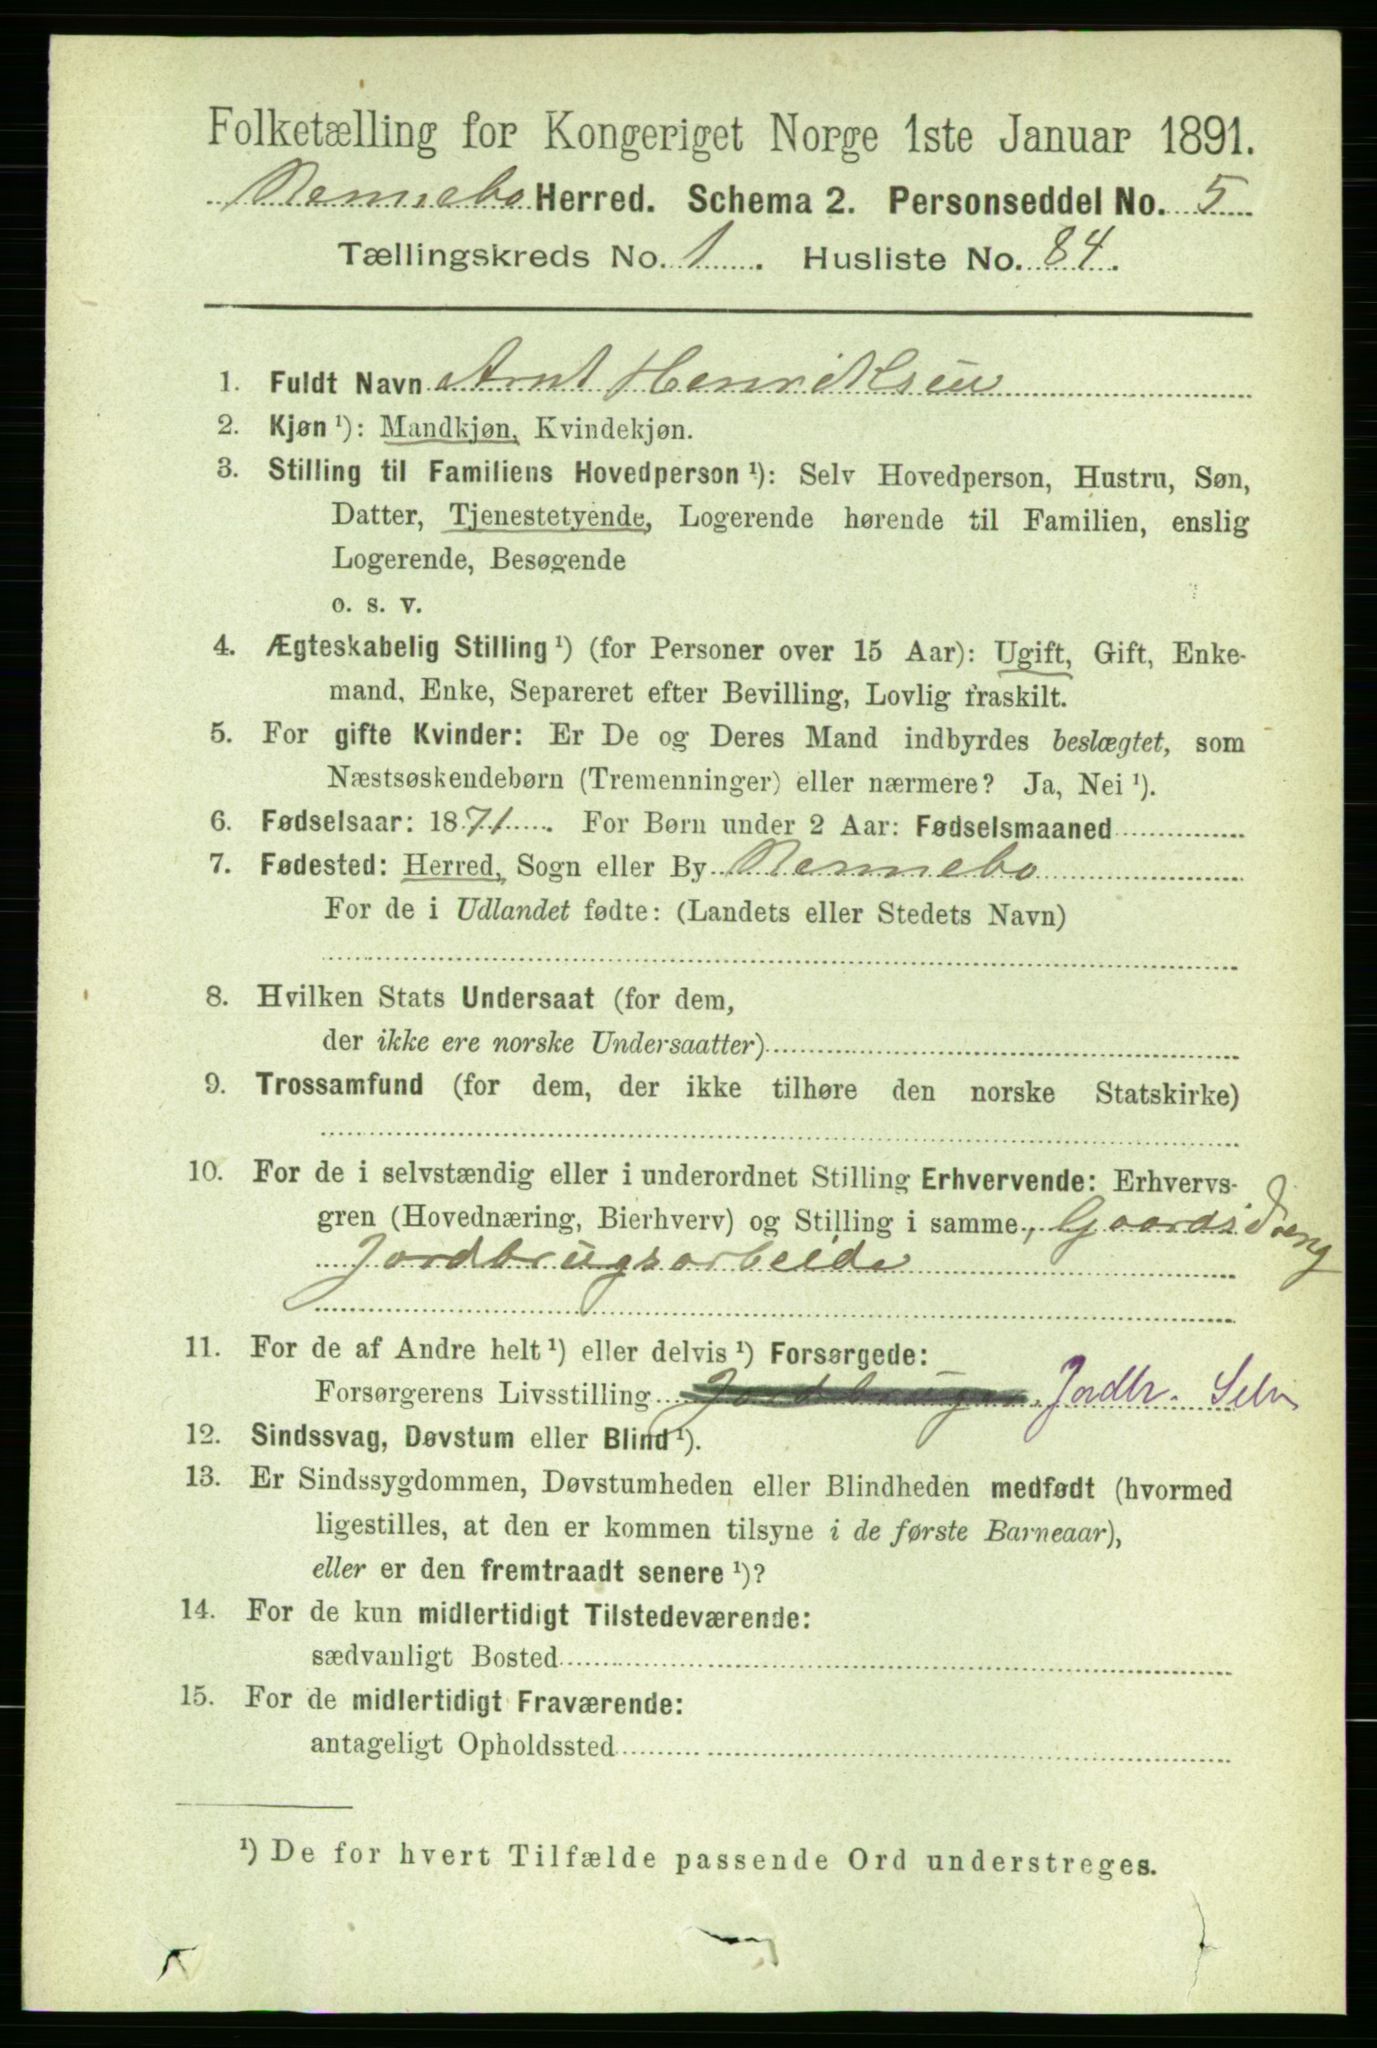 Folketælling for Kongeriget Norge 1ste Januar 1891.
Rennebo Herred. Schema 2. Personseddel No. 5
Tællingskreds No. 1. Husliste No. 84.
1. Fuldt Navn Arnt Henriksen
2. Kjøn ¹): Mandkjøn, Kvindekjøn.
3. Stilling til Familiens Hovedperson ¹): Selv Hovedperson, Hustru, Søn,
Datter, Tjenestetyende, Logerende hørende til Familien, enslig
Logerende, Besøgende
o. s. v.
4. Ægteskabelig Stilling ¹) (for Personer over 15 Aar): Ugift, Gift, Enke-
mand, Enke, Separeret efter Bevilling, Lovlig fraskilt.
5. For gifte Kvinder: Er De og Deres Mand indbyrdes beslægtet, som
Næstsøskendebørn (Tremenninger) eller nærmere? Ja, Nei ¹).
6. Fødselsaar: 1871. For Børn under 2 Aar: Fødselsmaaned
7. Fødested: Herred, Sogn eller By Rennebo
For de i Udlandet fødte: (Landets eller Stedets Navn)
8. Hvilken Stats Undersaat (for dem,
der ikke ere norske Undersaatter)
9. Trossamfund (for dem, der ikke tilhøre den norske Statskirke)
10. For de i selvstændig eller i underordnet Stilling Erhvervende: Erhvervs-
gren (Hovednæring, Bierhverv) og Stilling i samme, Gaardsdreng
Jordbrugsarbeide
11. For de af Andre helt ¹) eller delvis ¹) Forsørgede:
Forsørgerens Livsstilling Jordbruger Jordbr. Selv
12. Sindssvag, Døvstum eller Blind ¹).
13. Er Sindssygdommen, Døvstumheden eller Blindheden medfødt (hvormed
ligestilles, at den er kommen tilsyne i de første Barneaar),
eller er den fremtraadt senere ¹)?
14. For de kun midlertidigt Tilstedeværende:
sædvanligt Bosted
15. For de midlertidigt Fraværende:
antageligt Opholdssted
¹) De for hvert Tilfælde passende Ord understreges.